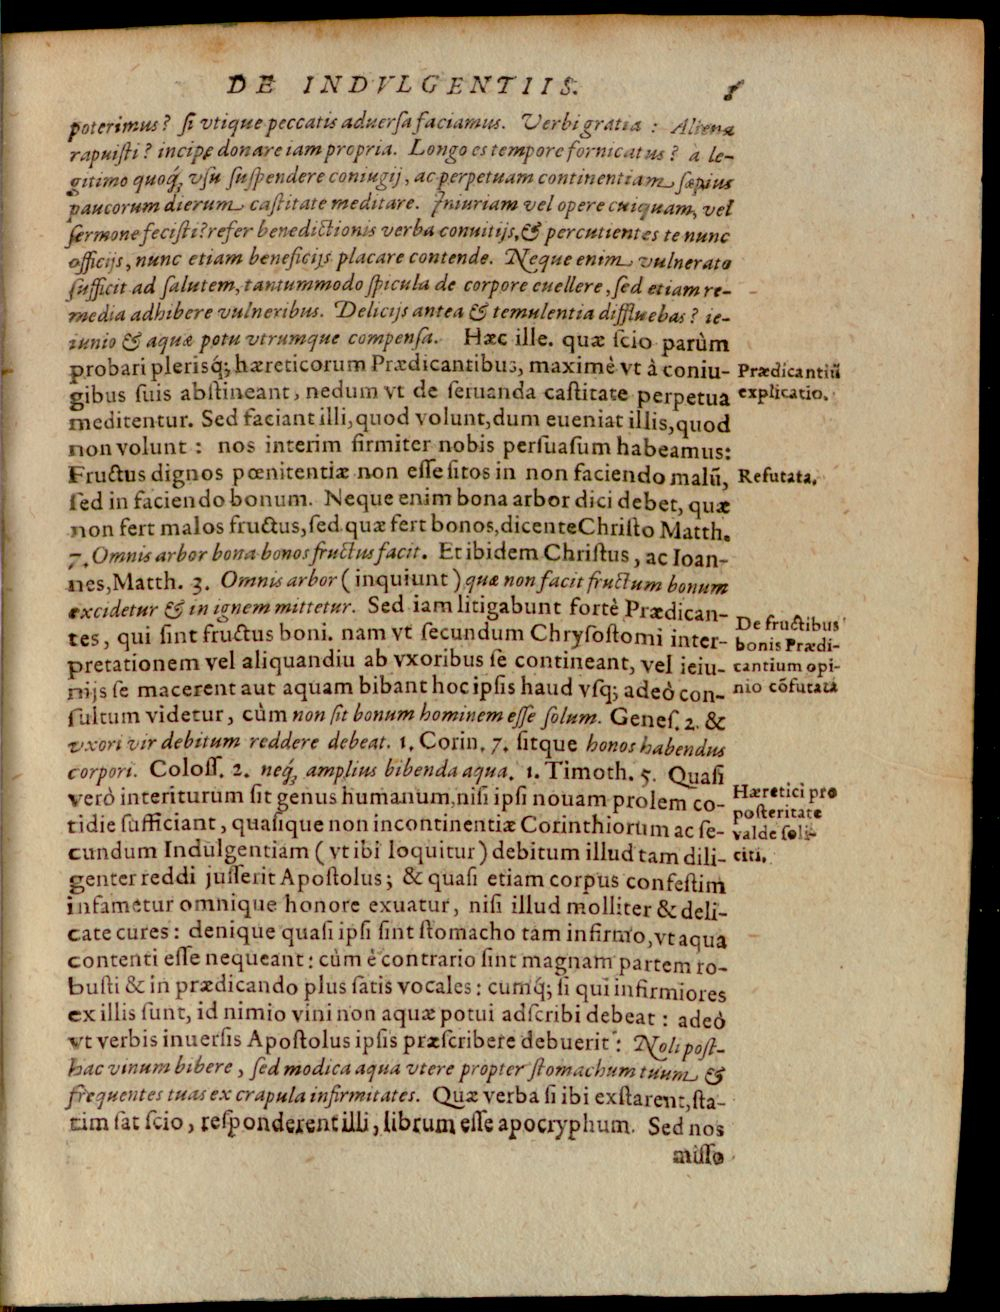 DE INDVLGENTIIS.
poterimus? ſi vtique peccatis aduerſa faciamus. Verbi gratia: Aliena
rapuiſti? incipe donare iam propria. Longo es tempore fornicatus? a le-
gitimo quoq́; vſu ſuſpendere coniugij, ac perpetuam continentiam ſæpius
paucorum dierum caſtitate meditare. Iniuriam vel opere cuiquam, vel
ſermone feciſti? refer benedictionis verba conuitijs, & percutientes te nunc
officijs, nunc etiam beneficijs placare contende. Neque enim vulnerato
ſufficit ad ſalutem, tantummodo ſpicula de corpore euellere, ſed etiam re-
media adhibere vulneribus. Delicijs antea & temulentia diffluebas? ie-
iunio & aquæ potu vtrumque compenſa. Hæc ille. quæ ſcio parùm
probari pleriſq́; hæreticorum Prædicantibus, maximè vt à coniu-
gibus ſuis abſtineant, nedum vt de ſeruanda caſtitate perpetua
meditentur. Sed faciant illi, quod volunt, dum eueniat illis, quod
non volunt: nos interim firmiter nobis perſuaſum habeamus:
Fructus dignos pœnitentiæ non eſſe ſitos in non faciendo malũ,
ſed in faciendo bonum. Neque enim bona arbor dici debet, quæ
non fert malos fructus, ſed quæ fert bonos, dicente Chriſto Matth.
7. Omnis arbor bona bonos fructus facit. Et ibidem Chriſtus, ac Ioan-
nes, Matth. 3. Omnis arbor (inquiunt) quæ non facit fructum bonum
excidetur & in ignem mittetur. Sed iam litigabunt fortè Prædican-
tes, qui ſint fructus boni. nam vt ſecundum Chryſoſtomi inter-
pretationem vel aliquandiu ab vxoribus ſe contineant, vel ieiu-
nijs ſe macerent aut aquam bibant hoc ipſis haud vſq; adeò con-
ſultum videtur, cùm non ſit bonum hominem eſſe ſolum. Geneſ. 2. &
vxori vir debitum reddere debeat. 1. Corin. 7. ſitque honos habendus
corpori. Coloſſ. 2. neq́; amplius bibenda aqua. 1. Timoth. 5. Quaſi
verò interiturum ſit genus humanum, niſi ipſi nouam prolem co-
tidie ſufficiant, quaſique non incontinentiæ Corinthiorum ac ſe-
cundum Indulgentiam (vt ibi loquitur) debitum illud tam dili-
genter reddi juſſerit Apoſtolus; & quaſi etiam corpus confeſtim
infametur omnique honore exuatur, niſi illud molliter & deli-
cate cures: denique quaſi ipſi ſint ſtomacho tam infirmo, vt aqua
contenti eſſe nequeant: cùm è contrario ſint magnam partem ro-
buſti & in prædicando plus ſatis vocales: cumq́; ſi qui infirmiores
ex illis ſunt, id nimio vini non aquæ potui adſcribi debeat: adeò
vt verbis inuerſis Apoſtolus ipſis præſcribere debuerit: Noli poſt-
hac vinum bibere, ſed modica aqua vtere propter ſtomachum tuum &
frequentes tuas ex crapula infirmitates. Quæ verba ſi ibi exſtarent, ſta-
tim ſat ſcio, reſponderent illi, librum eſſe apocryphum. Sed nos
miſſo
Prædicantiũ
explicatio.
Refutata.
De fructibus
bonis Prædi-
cantium opi-
nio cõfutata
Hæretici pro
poſteritate
valde ſoli-
citi.